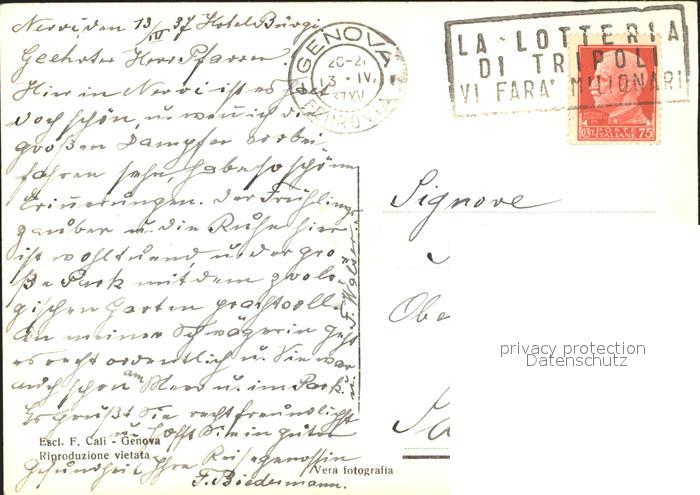 Nervi den 13/IV 37 Hotel Bürgi
Geehrter Herr Pfarrer!
Hier in Nervi ist es halt
doch schön, u. wen ich die
großen Dampfer vorbei-
fahren sehn, habe so schöne
Erinnerungen. Der Frühlings-
zauber u. die Ruhe hier
ist wohltuend, u. der gro
ße Park mit dem zoolo-
gischen Garten prachtvoll.
An meiner Schwägerin geht
es recht ordentlich u. Sie war
auch schon am Meer u. im Park.
Es grüßt Sie recht freundlicht
u. hofft Sie in guter
Gesundheit Ihre Reisegenossin
F. Biedermann.
Escl. F. Cali - Genova
Riproduzione vietata
Vera fotografia
GENOVA
20-21
13 · IV
37 XV
FERROVIA
LA LOTTERIA
DI TRIPOLI
VI FARA' MILIONARI
POSTE
ITALIANE
75
Signore
Obe
privacy protection
Datenschutz